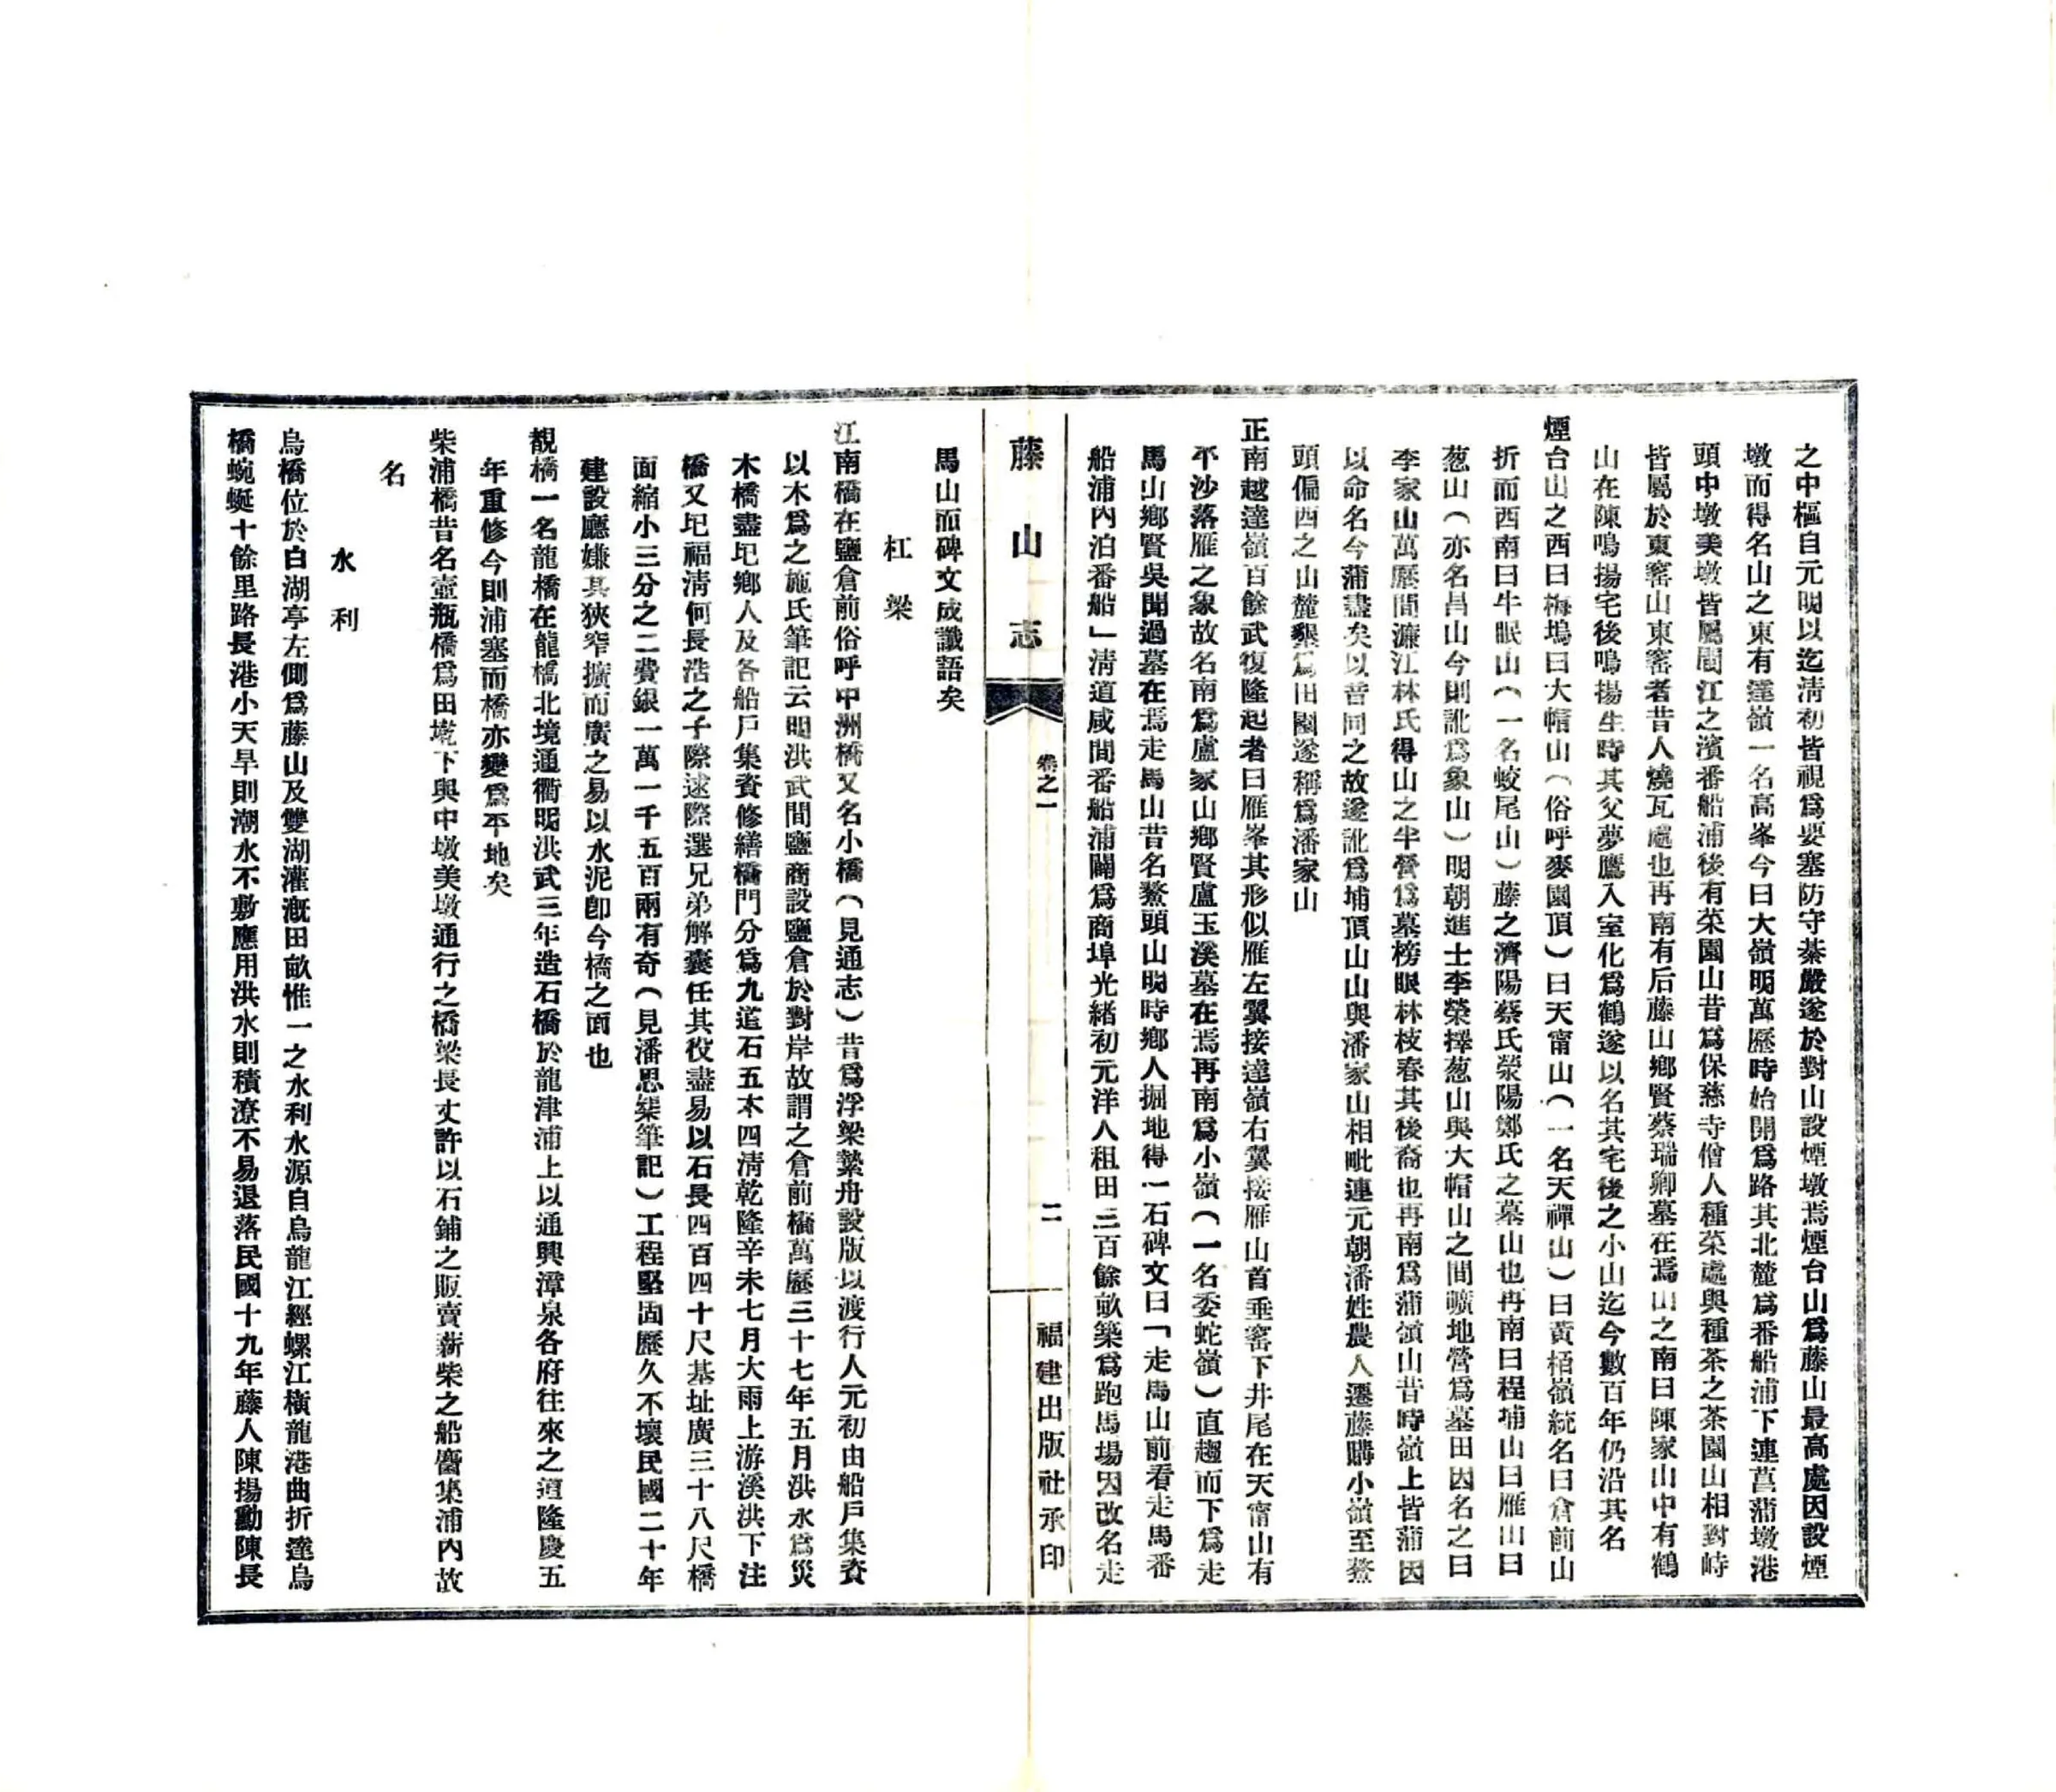 之中樞自元明以迄淸初皆視爲要塞防守綦嚴遂於對山設煙墩焉煙台山爲藤山最高處因設煙
墩而得名山之東有達嶺一名高峯今曰大嶺明萬曆時始開爲路其北麓爲番船浦下連菖蒲墩港
頭中墩美墩皆屬閩江之濱番船浦後有菜園山昔爲保慈寺僧人種菜處與種茶之茶園山相對峙
皆屬於東窰山東窰者昔人燒瓦處也再南有后藤山鄕賢蔡瑞卿墓在焉山之南曰陳家山中有鶴
山在陳鳴揚宅後鳴揚生時其父夢鷹入室化爲鶴遂以名其宅後之小山迄今數百年仍沿其名
煙台山之西曰梅塢曰大帽山（俗呼麥園頂）曰天甯山（一名天禪山）曰黃栢嶺統名曰倉前山
折而西南曰牛眠山（一名蛟尾山）藤之濟陽蔡氏滎陽鄭氏之墓山也再南曰程埔山曰雁山曰
葱山（亦名昌山今則訛爲象山）明朝進士李榮擇葱山與大帽山之間曠地營爲墓田因名之曰
李家山萬曆間濂江林氏得山之半營爲墓榜眼林枝春其後裔也再南爲蒲嶺山昔時嶺上皆蒲因
以命名今蒲盡矣以音同之故遂訛爲埔頂山山與潘家山相毗連元朝潘姓農人遷藤購小嶺至鰲
頭偏西之山麓墾爲田園遂稱爲潘家山
正南越達嶺百餘武復隆起者曰雁峯其形似雁左翼接達嶺右翼接雁山首垂窰下井尾在天甯山有
平沙落雁之象故名南爲盧家山鄕賢盧玉溪墓在焉再南爲小嶺（一名委蛇嶺）直趨而下爲走
馬山鄕賢吳聞過墓在焉走馬山昔名鰲頭山明時鄕人掘地得一石碑文曰「走馬山前看走馬番
船浦內泊番船」淸道咸間番船浦闢爲商埠光緒初元洋人租田三百餘畝築爲跑馬場因改名走
藤山志
卷之一
二
福建出版社承印
馬山而碑文成讖語矣
杠梁
江南橋在鹽倉前俗呼中洲橋又名小橋（見通志）昔爲浮梁繫舟設版以渡行人元初由船戶集資
以木爲之施氏筆記云明洪武間鹽商設鹽倉於對岸故謂之倉前橋萬曆三十七年五月洪水爲災
木橋盡圮鄕人及各船戶集資修繕橋門分爲九道石五木四淸乾隆辛未七月大雨上游溪洪下注
橋又圮福淸何長浩之子際逑際選兄弟解囊任其役盡易以石長四百四十尺基址廣三十八尺橋
面縮小三分之二費銀一萬一千五百兩有奇（見潘思榘筆記）工程堅固歷久不壞民國二十年
建設廳嫌其狹窄擴而廣之易以水泥卽今橋之面也
覩橋一名龍橋在龍橋北境通衢明洪武三年造石橋於龍津浦上以通興漳泉各府往來之道隆慶五
年重修今則浦塞而橋亦變爲平地矣
柴浦橋昔名壺瓶橋爲田墘下與中墩美墩通行之橋梁長丈許以石鋪之販賣薪柴之船麕集浦內故
名
水利
烏橋位於白湖亭左側爲藤山及雙湖灌漑田畝惟一之水利水源自烏龍江經螺江橫龍港曲折達烏
橋蜿蜒十餘里路長港小天旱則潮水不敷應用洪水則積潦不易退落民國十九年藤人陳揚勳陳長